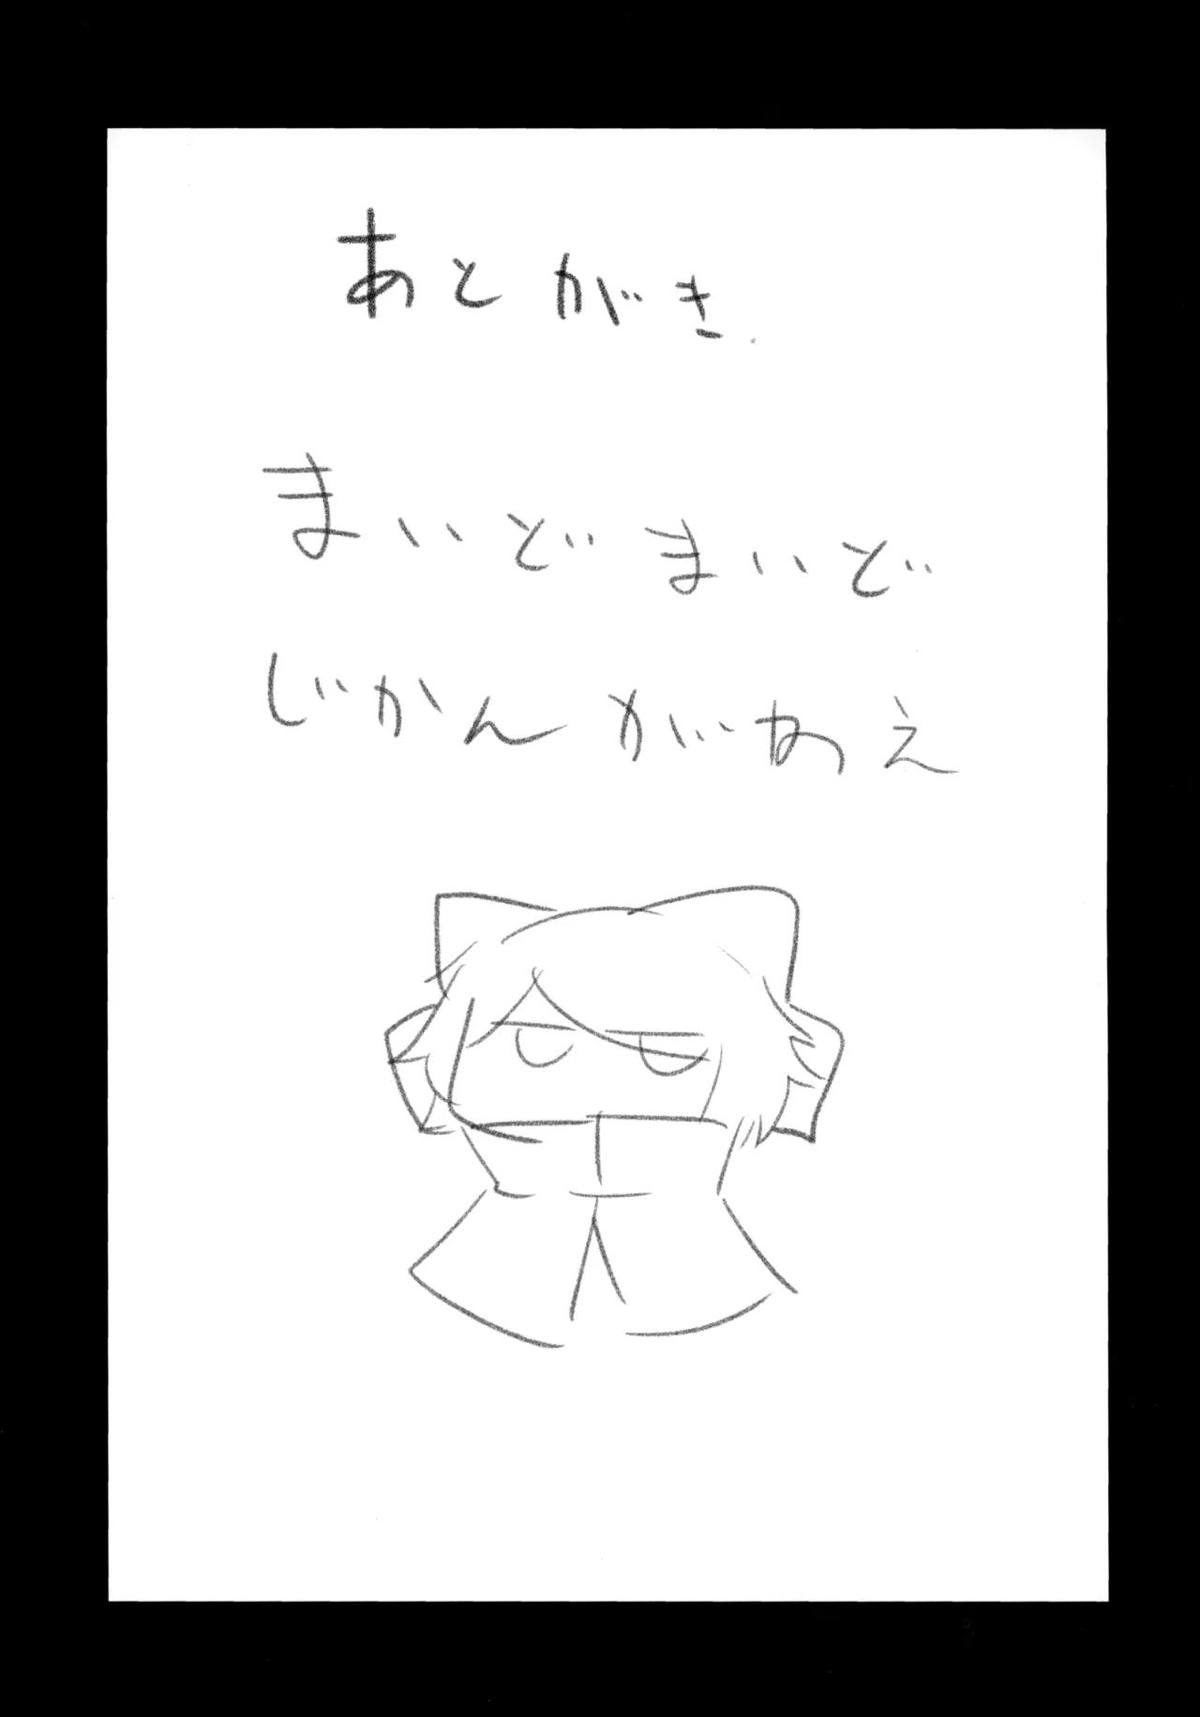 あとがき.
まいどまいど
じかんがねえ